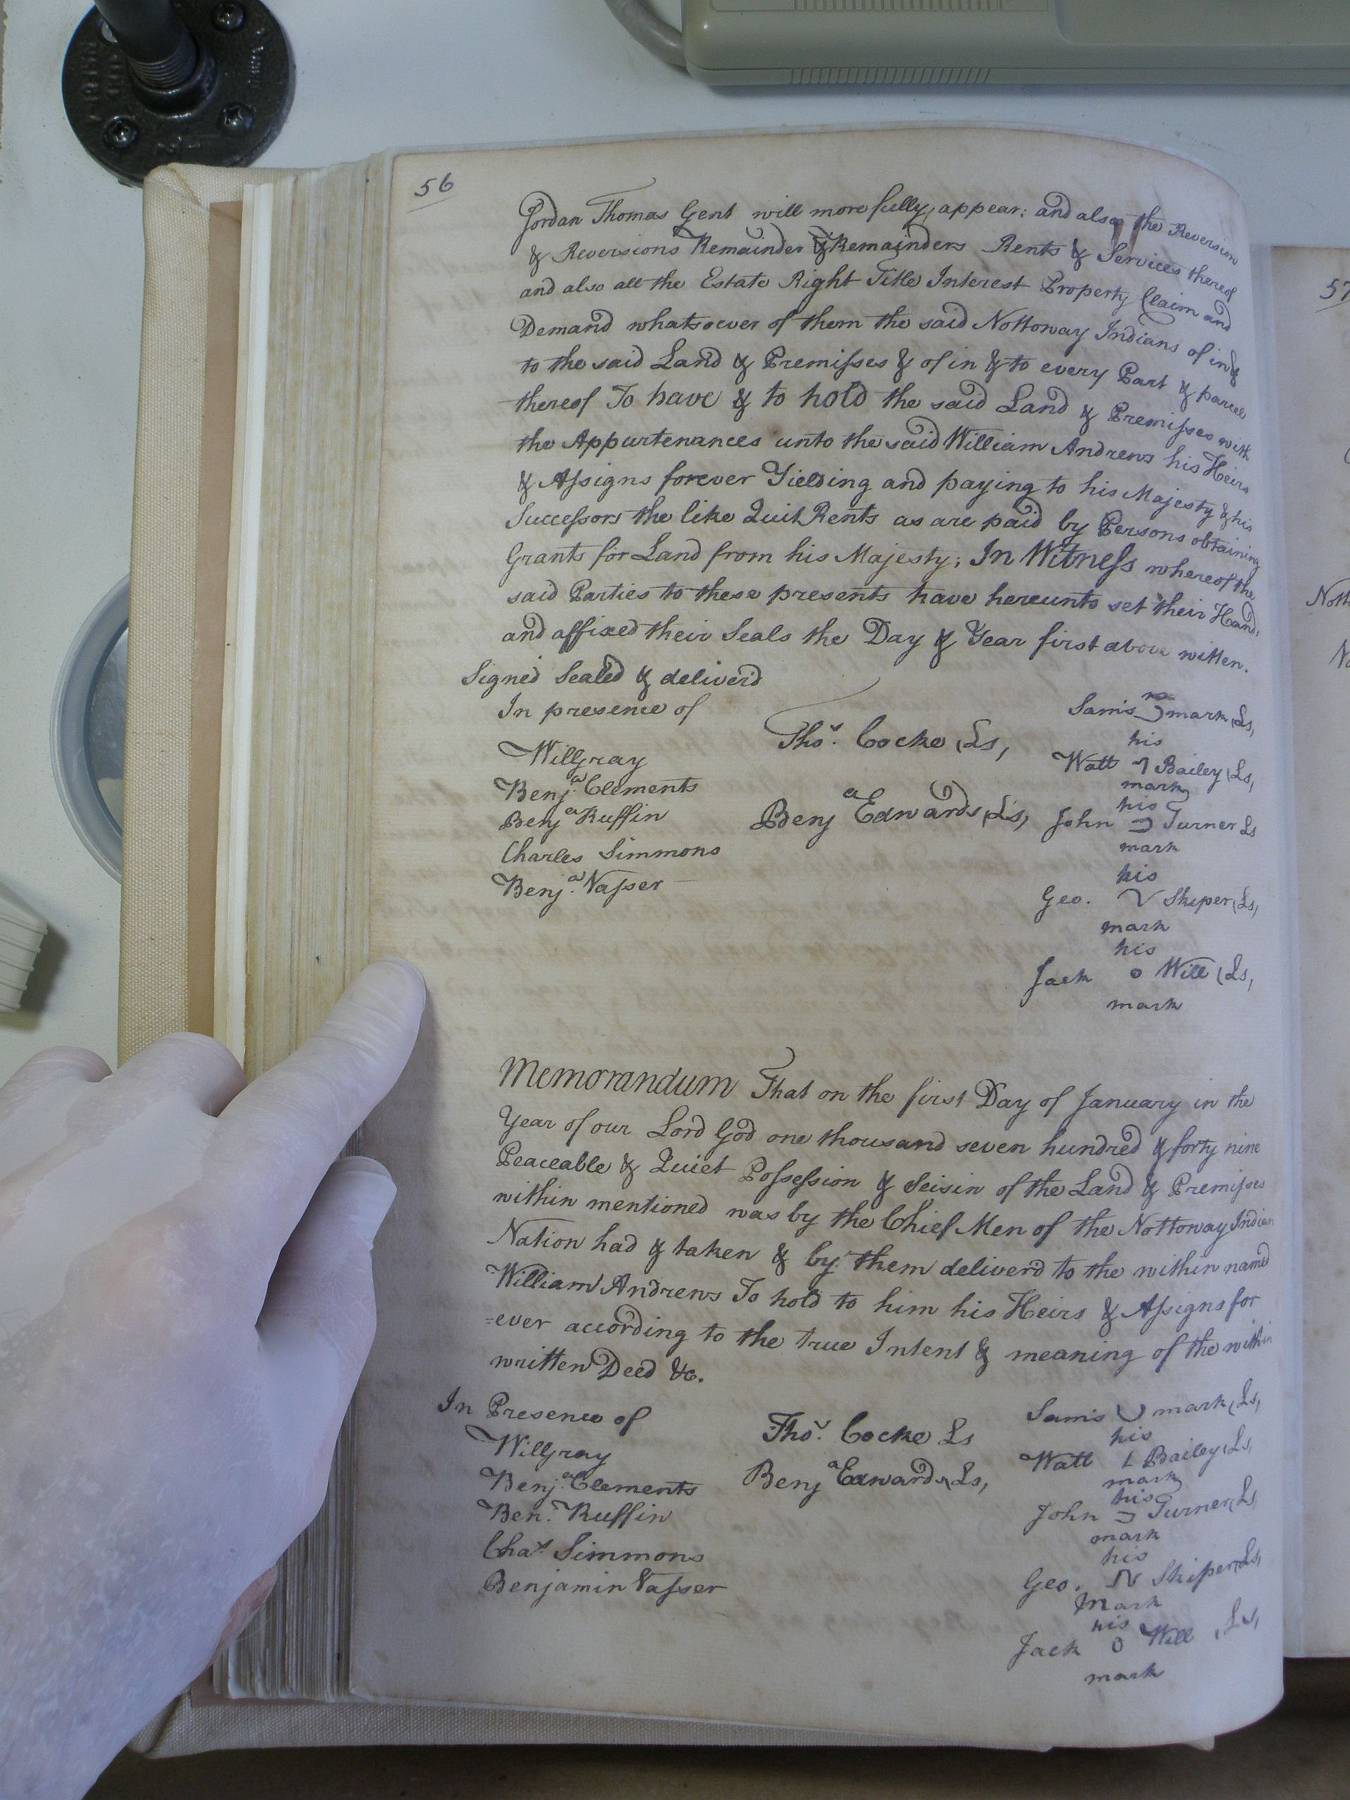 56
Jordan Thomas Gent will more fully appear; and also the Reversion
& Reversions Remainder & Remainders Rents & Services thereof
and also all the Estate Right Title Interest Property Claim and
Demand whatsoever of them the said Nottoway Indians of in &
to the said Land & Premisses & of in & to every Part & parcel
thereof To have & to hold the said Land & Premisses with
the Appurtenances unto the said William Andrews his Heirs
& Assigns forever Yielding and paying to his Majesty & his
Successors the like Quit Rents as are paid by Persons obtaining
Grants for Land from his Majesty; In Witness whereof the
said Parties to these presents have hereunto set their Hands
and affixed their Seals the Day & Year first above written.
Signed Sealed & deliverd
In presence of
Will Gray
Benja. Clements
Benja Ruffin
Charles Simmons
Benja. Vasser
Thos. Cocke (Ls,
Benja Edwards (Ls,
Sam's mark (Ls,
his
Watt Bailey (Ls,
mark
his
John Turner Ls
mark
his
Geo. Skiper (Ls,
mark
his
Jack o Will (Ls,
mark
Memorandum That on the first Day of January in the
Year of our Lord God one thousand seven hundred & forty nine
Peaceable & Quiet Possession & Seisin of the Land & Premisses
within mentioned was by the Chief Men of the Nottoway Indian
Nation had & taken & by them deliverd to the within named
William Andrews To hold to him his Heirs & Assigns for
=ever according to the true Intent & meaning of the within
written Deed &c.
In Presence of
Will Gray
Benja. Clements
Ben. Ruffin
Chas. Simmons
Benjamin Vasser
Thos. Cocke Ls
Benja Edwards (Ls,
Sam's mark (Ls,
his
Watt Bailey (Ls,
mark
his
John Turner (Ls
mark
his
Geo. Skiper (Ls,
mark
his
Jack o Will (Ls,
mark
57